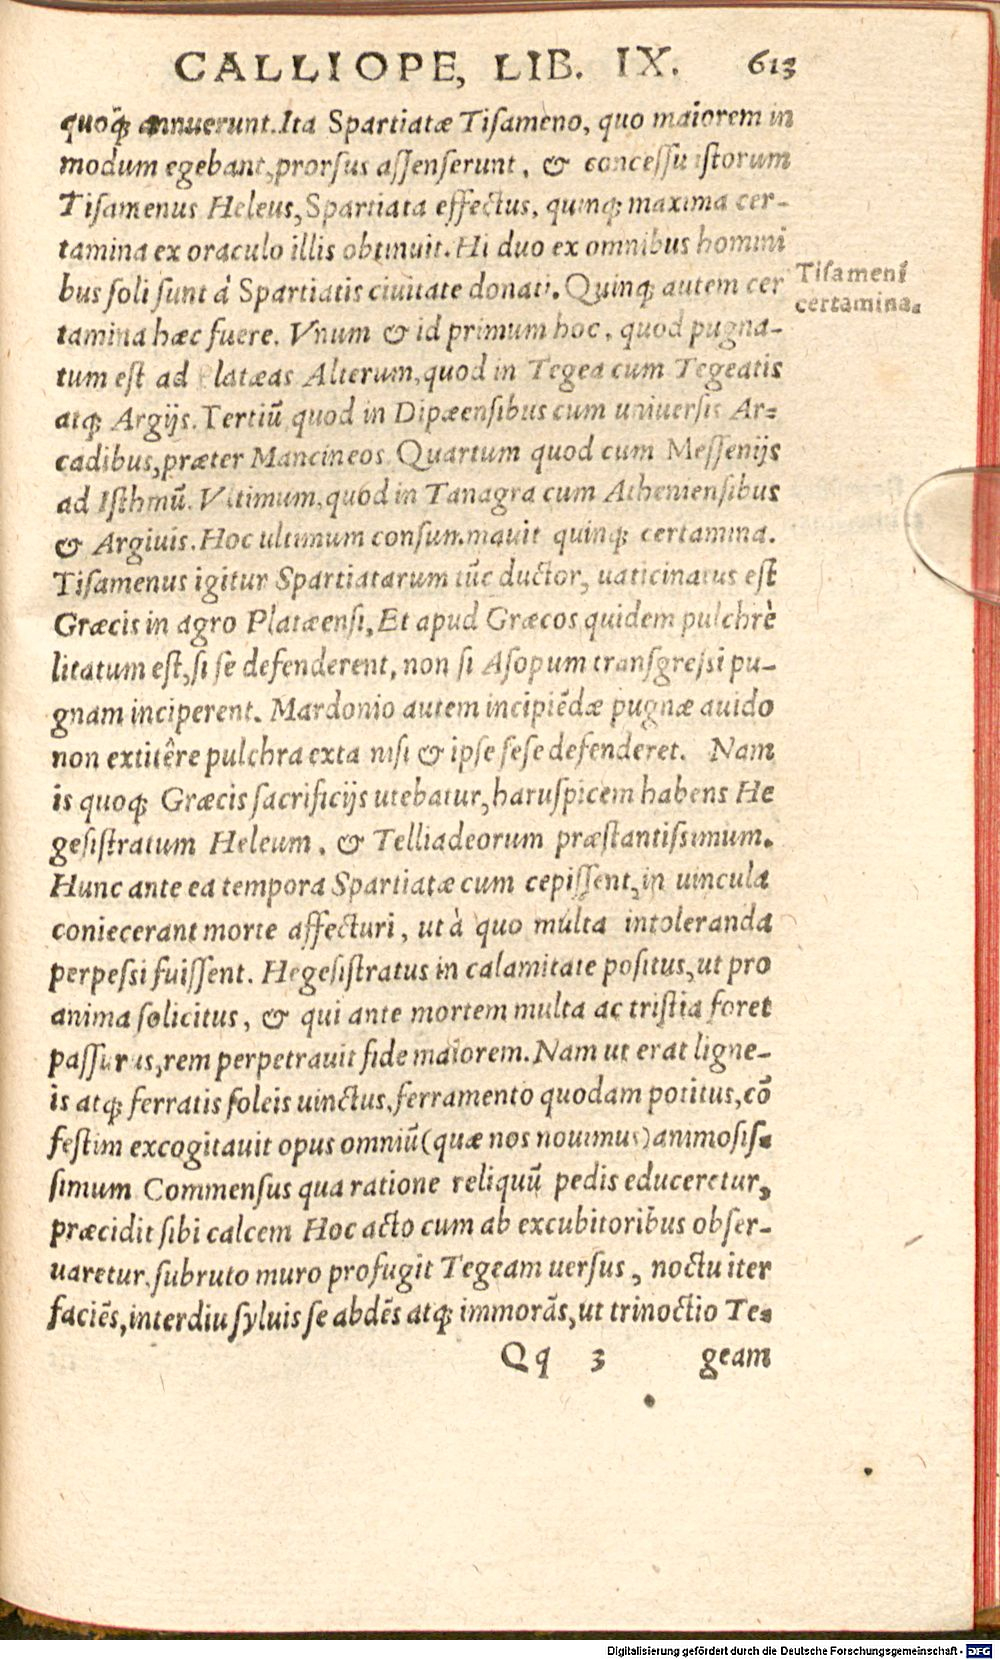 CALLIOPE, LIB. IX. 613
quoq; annuerunt. Ita Spartiatæ Tiſameno, quo maiorem in
modum egebant, prorſus aſſenſerunt. & conceſſu iſtorum
Tiſamenus Heleus, Spartiata effectus, quinq; maxima cer-
tamina ex oraculo illis obtinuit. Hi duo ex omnibus homini
bus ſoli ſunt à Spartiatis ciuitate donati. Quinq; autem cer
Tiſameni
certamina.
tamina hæc fuere. Vnum & id primum hoc, quod pugna-
tum eſt ad Platæas Alterum, quod in Tegea cum Tegeatis
atq; Argijs. Tertiū quod in Dipæenſibus cum uniuerſis Ar-
cadibus, præter Mancineos Quartum quod cum Meſſenijs
ad Iſthmū. Vltimum, quod in Tanagra cum Athenienſibus
& Argiuis. Hoc ultimum conſummauit quinq; certamina.
Tiſamenus igitur Spartiatarum tūc ductor, uaticinatus eſt
Græcis in agro Platæenſi, Et apud Græcos quidem pulchrè
litatum eſt, ſi ſe defenderent, non ſi Aſopum tranſgreſſi pu-
gnam inciperent. Mardonio autem incipiēdæ pugnæ auido
non extitêre pulchra exta niſi & ipſe ſeſe defenderet. Nam
is quoq; Græcis ſacrificijs utebatur, haruſpicem habens He
geſiſtratum Heleum, & Telliadeorum præſtantiſsimum.
Hunc ante ea tempora Spartiatæ cum cepiſſent, in uincula
coniecerant morte affecturi, ut à quo multa intoleranda
perpeſſi fuiſſent. Hegeſiſtratus in calamitate poſitus, ut pro
anima ſolicitus, & qui ante mortem multa ac triſtia foret
paſſurus, rem perpetrauit fide maiorem. Nam ut erat ligne-
is atq; ferratis ſoleis uinctus, ferramento quodam potitus, cō
feſtim excogitauit opus omniū (quæ nos nouimus) animoſiſ-
ſimum Commenſus qua ratione reliquū pedis educeretur,
præcidit ſibi calcem Hoc acto cum ab excubitoribus obſer-
uaretur, ſubruto muro profugit Tegeam uerſus, noctu iter
faciēs, interdiu ſyluis ſe abdēs atq; immorās, ut trinoctio Te-
Qq 3 geam
Digitalisierung gefördert durch die Deutsche Forschungsgemeinschaft - DFG